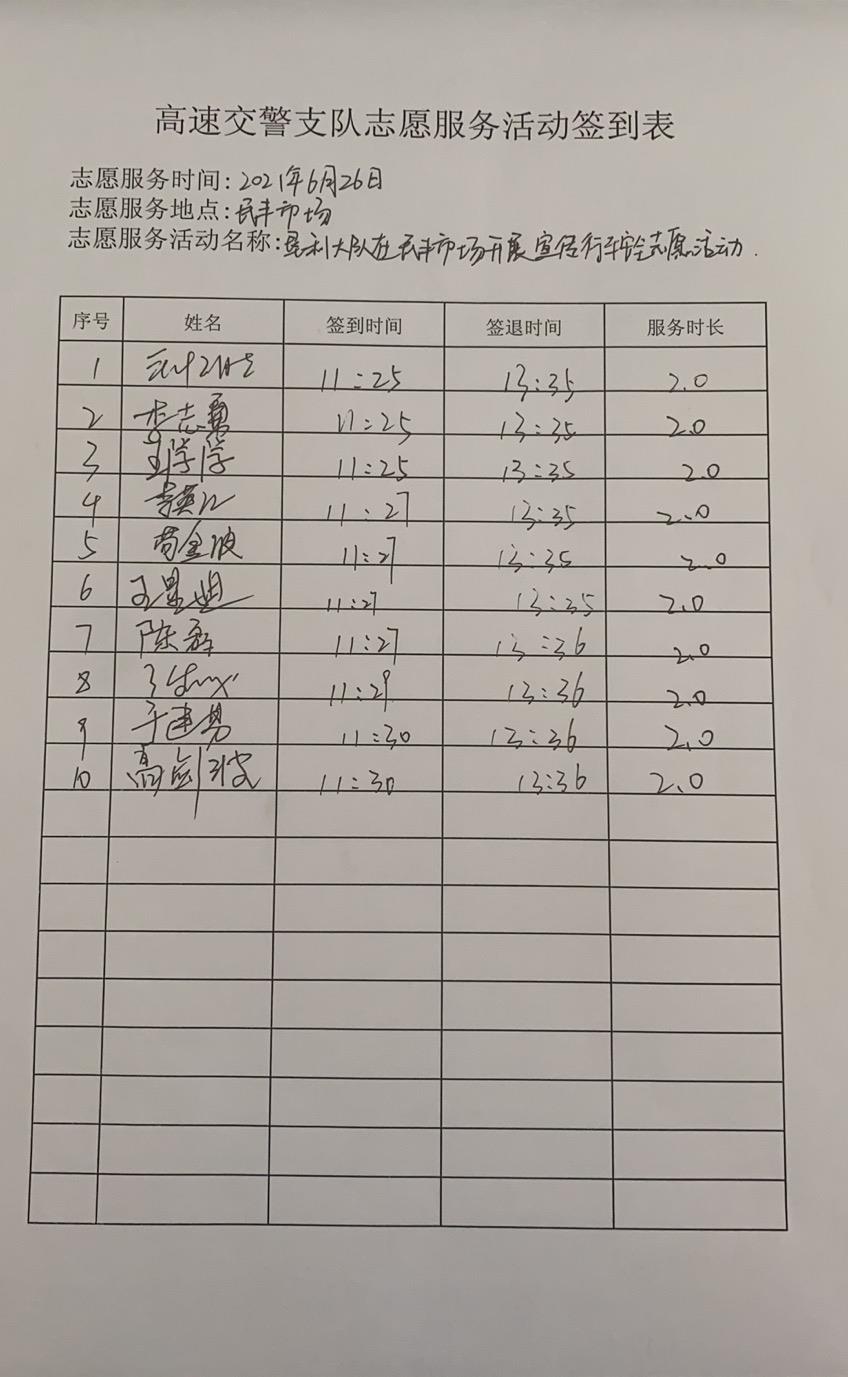 高速交警支队志愿服务活动签到表
志愿服务时间:2021年6月26日
志愿服务地点:民丰市场
志愿服务活动名称:垦利大队在民丰市场开展宣传行车安全志愿活动.
序号 姓名 签到时间 签退时间 服务时长
1 11:25 13:35 2.0
2 李志勇 11:25 13:35 2.0
3 11:25 13:35 2.0
4 李英 11:27 13:35 2.0
5 苟金波 11:27 13:35 2.0
6 王 11:27 13:35 2.0
7 陈 11:27 13:36 2.0
8 11:29 13:36 2.0
9 于建勇 11:30 13:36 2.0
10 高剑波 11:30 13:36 2.0